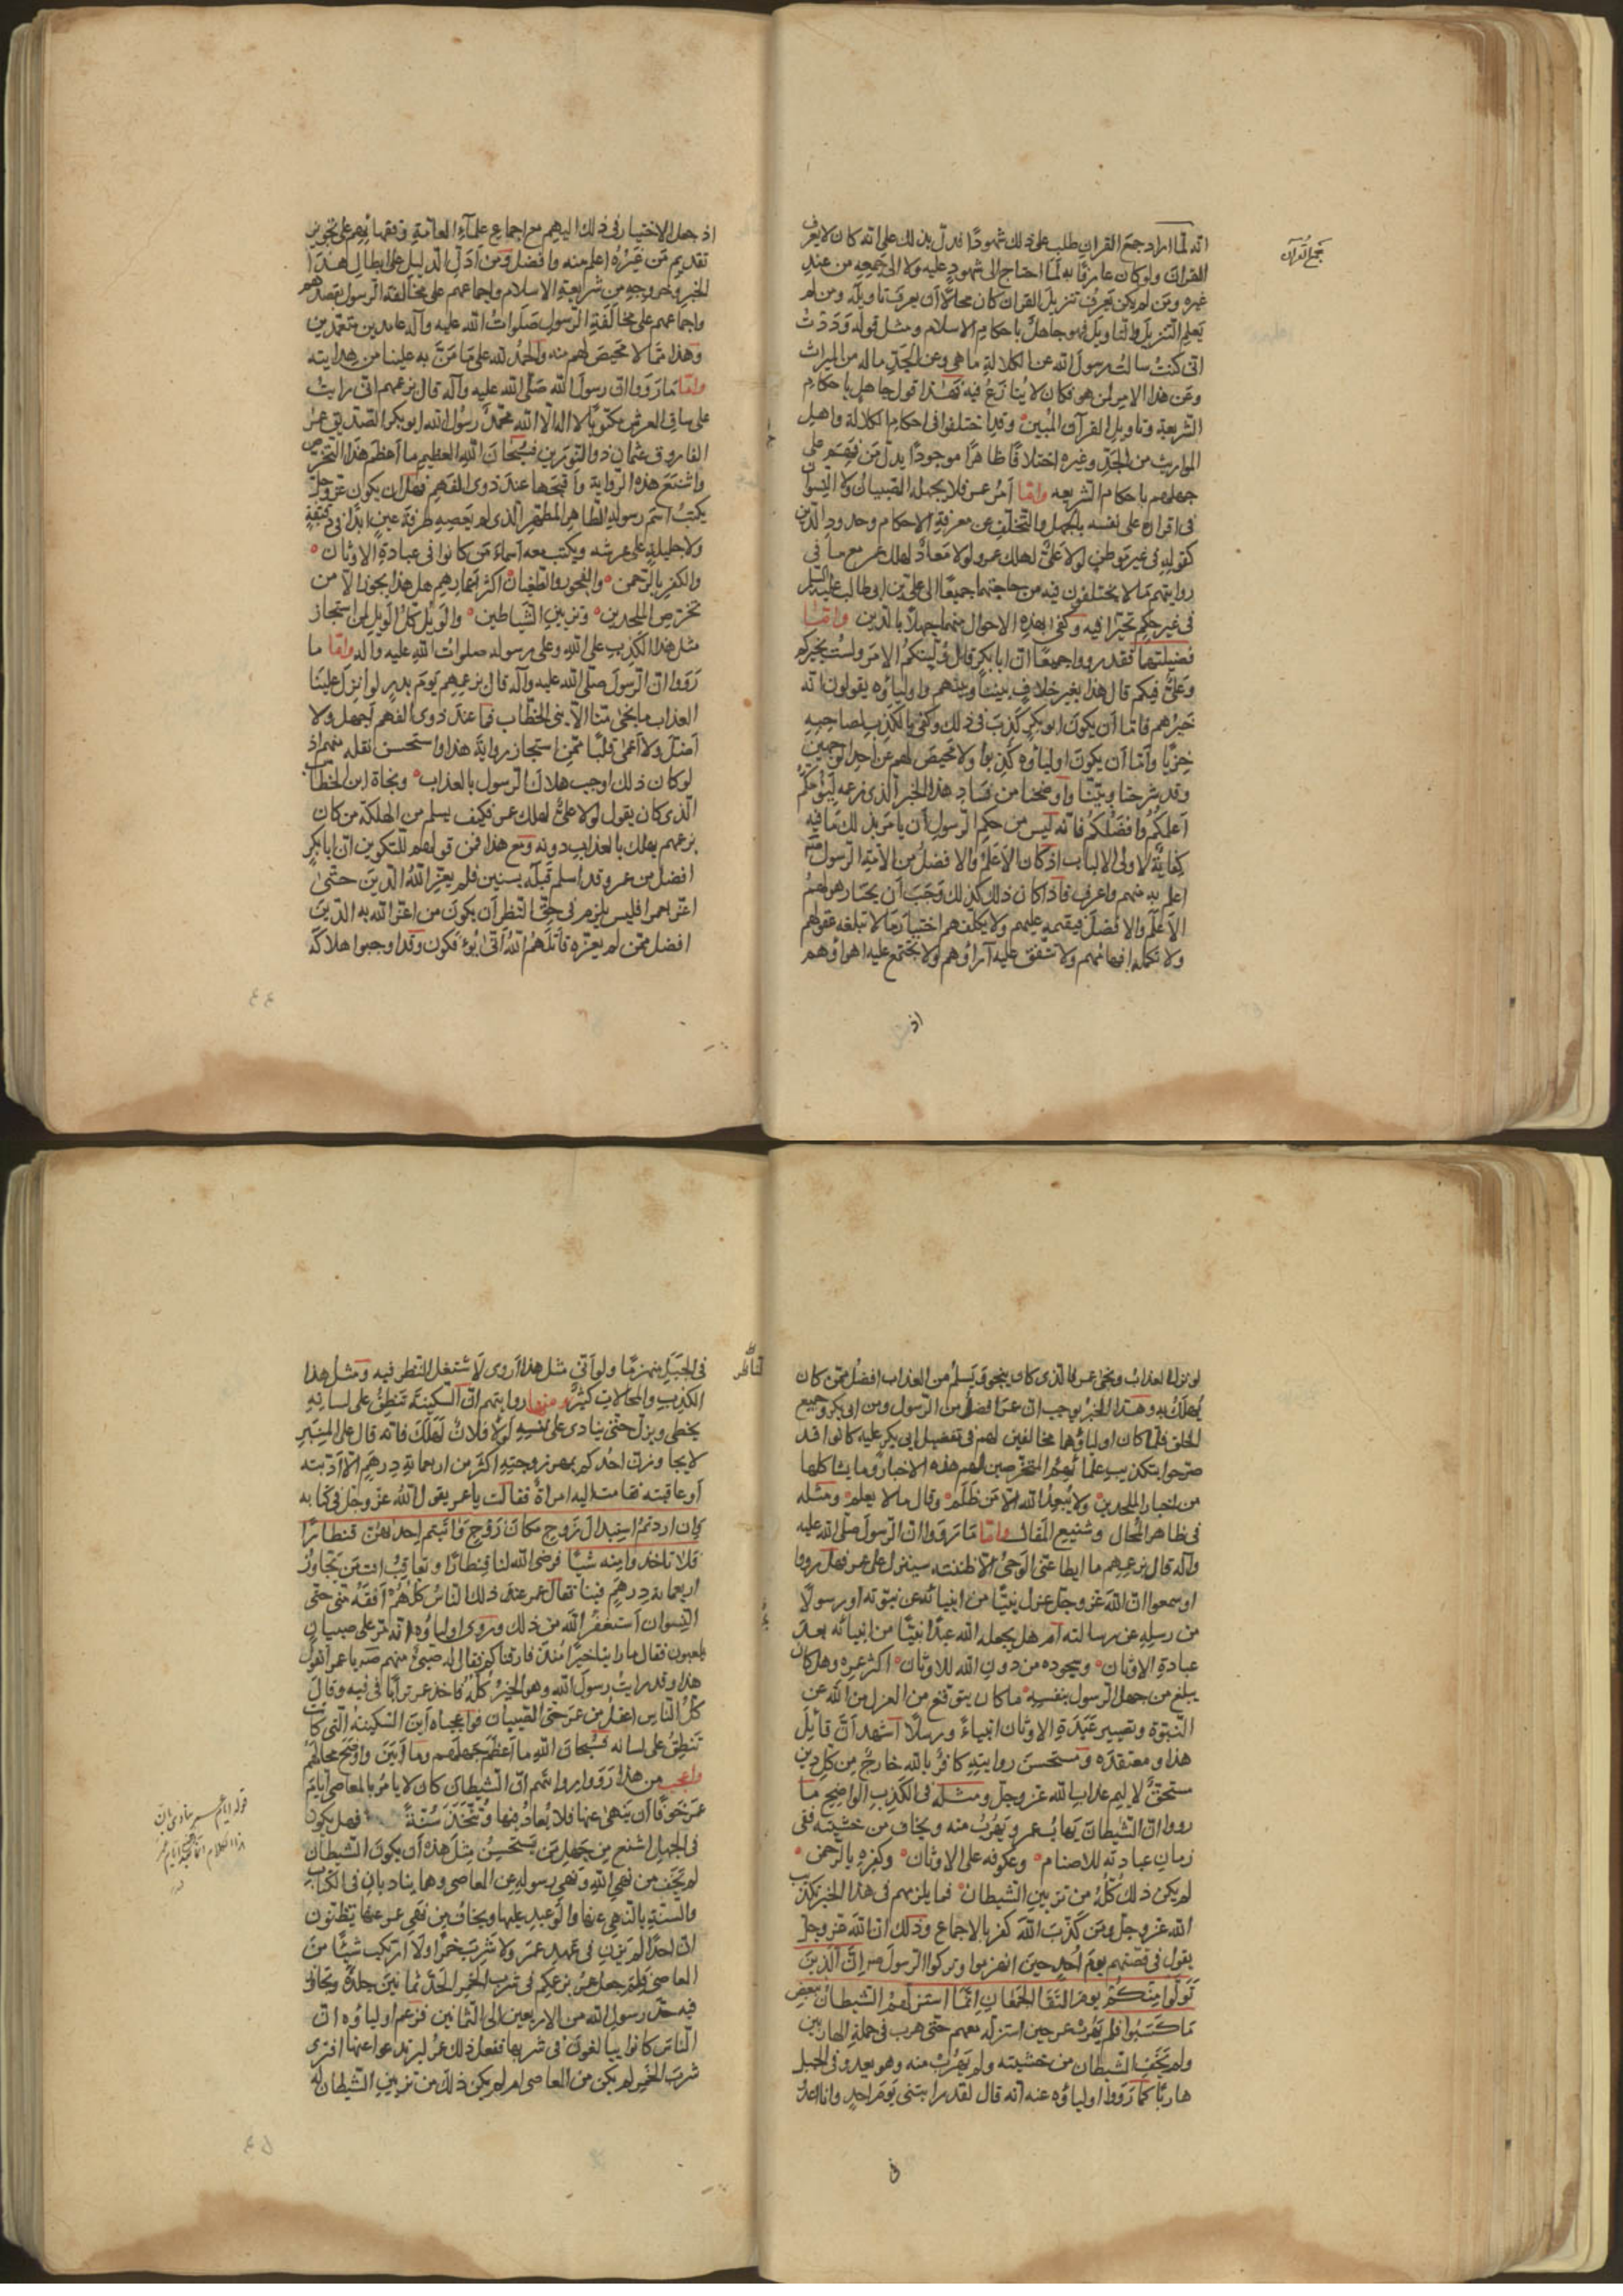 جمع القرآن
انه لما اراد جمع القران طلب على ذلك شهودا فدل بذلك على انه كان لا يعرف
القران ولو كان عارفا به لما احتاج الى شهود عليه ولا الى جمعه من عند
غيره ومن لم يكن يعرف تنزيل القران كان محالا ان يعرف تاويله ومن لم
يعلم التنزيل والتاويل فهو جاهل باحكام الاسلام ومثل قوله وددت
انى كنت سالت رسول الله عن الكلالة ما هى وعن الجد ماله من الميراث
وعن هذا الامر لمن هو فكان لا ينازع فيه فهذا قول جاهل باحكام
الشريعة وتاويل القرآن المبين وقد اختلفوا فى احكام الكلالة واهل
المواريث من الجد وغيره اختلافا ظاهرا موجودا يدل من فهم على
جهلهم باحكام الشريعه واما امر عمر فلا يجهله الصبيان ولا النسوان
فى اقراره على نفسه بالجهل والتخلف عن معرفة الاحكام وحدود الدين
كقوله فى غير موطن لولا على لهلك عمر ولولا معاذ لهلك عمر مع ما فى
روايتهم مما لا يختلفون فيه من حاجتهما جميعا الى على بن ابى طالب عليه السلم
فى غير حكم تحيرا فيه وكفى بهذه الاحوال منهما جهلا بالدين واما
فضيلتهما فقد رووا جميعا ان ابا بكر قال وليتكم الامر ولست بخيركم
وعلى فيكم قال هذا بغير خلاف بيننا وبينهم واولياؤه يقولون انه
خيرهم فاما ان يكون ابو بكر كذب فى ذلك وكفى بالكذب لصاحبه
خزيا واما ان يكون اولياؤه كذبوا ولا محيص لهم عن احد الوجهين
وقد شرحنا وبينا واوضحنا من فساد هذا الخبر الذى زعمه ليؤمكم
اعلمكم وافضلكم فانه ليس من حكم الرسول ان يامر بذلك ما فيه
كفاية لاولى الالباب اذ كان الاعلم والافضل من الامة الرسول
اعلم به منهم واعرف فاذا كان ذلك كذلك وجب ان يختار هو لهم
الاعلم والافضل فيقيمه عليهم ولا يكلفهم اختيار ما لا تبلغه عقولهم
ولا تكمله افهامهم ولا تتفق عليه آراؤهم ولا يجتمع عليه اهواؤهم
اذ
اذ جعل الاختيار فى ذلك اليهم مع اجماع علماء العامة وفقهائهم على تجويز
تقديم من غيره اعلم منه وافضل ومن ادل الدليل على ابطال هذا
الخبر وخروجه من شريعة الاسلام واجماعهم على مخالفة الرسول بقصدهم
واجماعهم على مخالفة الرسول صلوات الله عليه وآله عامدين متعمدين
وهذا مما لا محيص لهم منه والحمد لله على ما من به علينا من هدايته
واما ما رووا ان رسول الله صلى الله عليه وآله قال بزعمهم انى رايت
على ساق العرش مكتوبا لا اله الا الله محمد رسول الله ابو بكر الصديق عمر
الفاروق عثمان ذو النورين فسبحان الله العظيم ما اعظم هذا التخرص
واشنع هذه الرواية واقبحها عند ذوى الفهم فهل ان يكون عز وجل
يكتب اسم رسوله الطاهر المطهر الذى لم يعصه طرفة عين ابدا فى دقيقة
ولا جليلة على عرشه ويكتب معه اسماء من كانوا فى عبادة الاوثان
والكفر بالرحمن والفجور والطغيان اكثر اعمارهم هل هذا يجوز الا من
تخرص الملحدين وتزيين الشياطين والويل كل الويل لمن استجاز
مثل هذا الكذب على الله وعلى رسوله صلوات الله عليه واله واما ما
رووا ان الرسول صلى الله عليه وآله قال بزعمهم يوم بدر لو انزل علينا
العذاب ما نجى منا الا بنى الخطاب فما عند ذوى الفهم اجهل ولا
اضل ولا اعمى قلبا ممن استجاز رواية هذا واستحسن نقله منهم اذ
لو كان ذلك اوجب هلاك الرسول بالعذاب ونجاة ابن الخطاب
الذى كان يقول لولا على لهلك عمر فكيف يسلم من الهلكة من كان
بزعمهم يهلك بالعذاب دونه ومع هذا فمن قولهم للتكوين ان ابا بكر
افضل من عمر وقد اسلم قبله بسنين فلم يعز الله الدين حتى
اعز بعمر افليس يلزم فى حق النظر ان يكون من اعز الله به الدين
افضل ممن لم يعزه قاتلهم الله انى يؤفكون وقد اوجبوا هلاكه
٤٤
لو نزل العذاب ونجى عمر فالذى كان ينجو ويسلم من العذاب افضل ممن كان
يهلك به وهذا الخبر يوجب ان عمر افضل من الرسول ومن ابى بكر وجميع
الخلق فلما كان اولياؤهما مخالفين لهم فى تفضيل ابى بكر عليه كانوا قد
صرحوا بتكذيب علمائهم المتخرصين لهم هذه الاخبار وما يشاكلها
من اخبار الملحدين ولا يبعد الله الا من ظلم وقال ما لا يعلم ومثله
فى ظاهر المحال وشنيع المقال واما ما رووا ان الرسول صلى الله عليه
وآله قال بزعمهم ما ابطا عنى الوحى الا ظننته سينزل على عمر فهل رووا
او سمعوا ان الله عز وجل عزل نبيا من انبيائه عن نبوته او رسولا
من رسله عن رسالته ام هل يجعل الله عبدا نبيا من انبيائه بعد
عبادة الاوثان وسجوده من دون الله للاوثان اكثر عمره وهل كان
يبلغ من جهل الرسول بنفسه ما كان يتوقع من العزل من الله عن
النبوة وتصيير عبدة الاوثان انبياء ورسلا اشهد ان قائل
هذا ومعتقده ومستحسن روايته كافر بالله خارج من كل دين
مستحق لاليم عذاب الله عز وجل ومثله فى الكذب الواضح ما
رووا ان الشيطان يهاب عمر ويهرب منه ويخاف من خشيته ففى
زمان عبادته للاصنام وعكوفه على الاوثان وكفره بالرحمن
لم يكن ذلك كله من تزيين الشيطان فما يلزمهم فى هذا الخبر تكذيب
الله عز وجل ومن كذب الله كفر بالاجماع وذلك ان الله عز وجل
يقول فى قصتهم يوم احد حين انهزموا وتركوا الرسول ان الذين
تولوا منكم يوم التقى الجمعان انما استزلهم الشيطان ببعض
ما كسبوا فلم يهرب عمر حين استزله معهم حتى هرب فى جملة الهاربين
ولم يخف الشيطان من خشيته ولم يهرب منه وهو يعدو فى الجبل
هاربا كما رووا اولياؤه عنه انه قال لقد رايتنى يوم احد وانا اعدو
فى
الناظر
فى الجبل منهزما ولو انى مثل هذا اروى لاشتغل النظر فيه ومثل هذا
الكذب والمحالات كثير ومنها روايتهم ان السكينة تنطق على لسانه
يخطى ويزل حتى ينادى على نفسه لولا فلان لهلك فانه قال على المنبر
لا يجاوزن احدكم بمهر زوجته اكثر من اربعماية درهم الا ادبته
او عاقبته فقامت اليه امراة فقالت يا عمر يقول الله عز وجل فى كتابه
وان اردتم استبدال زوج مكان زوج واتيتم احداهن قنطارا
فلا تاخذوا منه شيئا فرضى الله لنا قنطارا وتعاقب انت من تجاوز
اربعماية درهم فينا فقال عمر عند ذلك الناس كلهم افقه منى حتى
النسوان استغفر الله من ذلك وروى اولياؤه انه مر على صبيان
يلعبون فقال ما راينا خيرا منذ فارقناكم فقال له صبى منهم يا عمر اتقول
هذا وقد رايت رسول الله وهو الخير كله فاخذ عمر ترابا فى فيه وقال
كل الناس اعقل من عمر حتى الصبيان فواعجباه اين السكينة التى كانت
تنطق على لسانه فسبحان الله ما اعظم جهلهم وما ابين واوضح محالهم
واعجب من هذا رووا روايتهم ان الشيطان كان لا يامر بالمعاصى ايام
عمر خوفا ان ينهى عنها فلا يعاد فيها وتتخذ سنة فهل يكون
فى الجهل اشنع من جهل من يستحسن مثل هذه ان يكون الشيطان
لم يخف من نهى الله ونهى رسوله عن المعاصى وهما يناديان فى الكتاب
والسنة بالنهى عنها والوعيد عليها ويخاف من نهى عمر عنها يظنون
ان احدا لم يزن فى عهد عمر ولا شرب خمرا ولا ارتكب شيئا من
المعاصى فلم جعل عمر بزعمكم فى شرب الخمر الحد ثمانين جلدة وتجاوز
فيه حد رسول الله من الاربعين الى الثمانين فزعم اولياؤه ان
الناس كانوا يبالغون فى شربها ففعل ذلك عمر ليرتدعوا عنها افترى
شرب الخمر لم يكن من المعاصى ام لم يكن ذلك من تزيين الشيطان له
٤٥